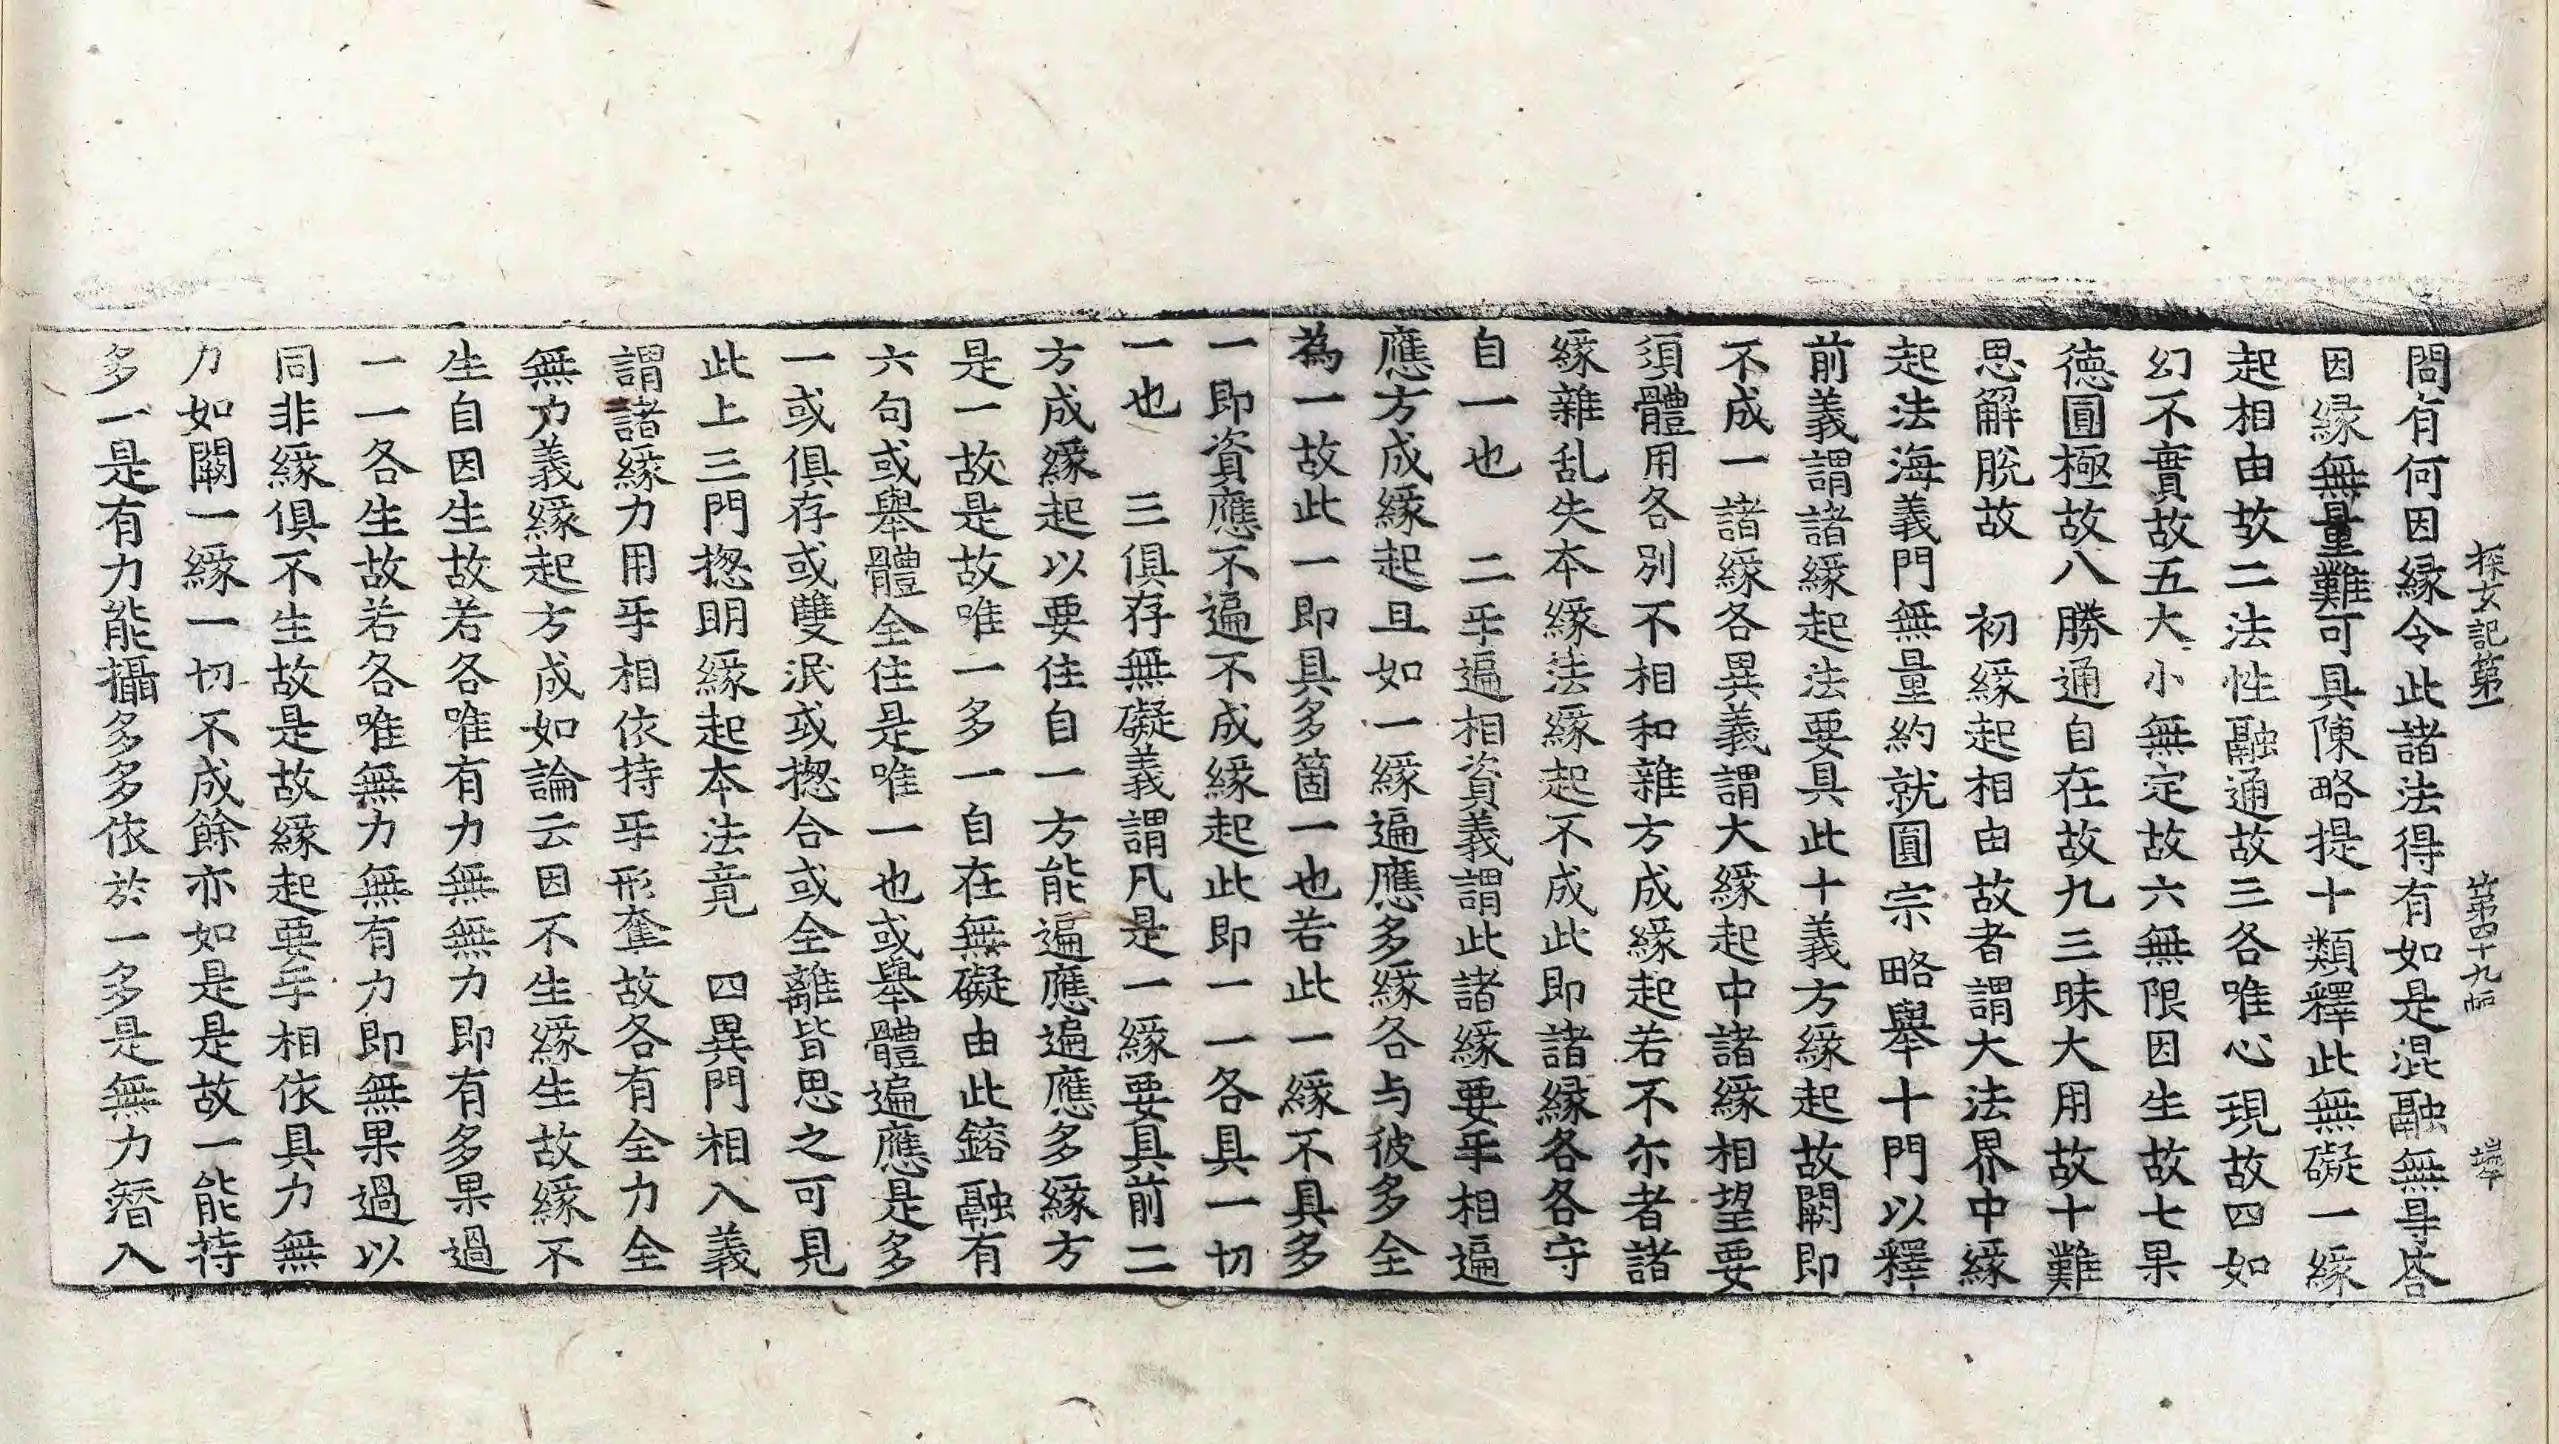 探玄記第一 第四十九幅 𡺸
問有何因縁令此諸法得有如是混融無㝵荅
因縁無量難可具陳略提十類釋此無礙一緣
起相由故二法性融通故三各唯心現故四如
幻不實故五大小無定故六無限因生故七果
德圓極故八勝通自在故九三昧大用故十難
思解脫故 初緣起相由故者謂大法界中緣
起法海義門無量約就圓宗略舉十門以釋
前義謂諸緣起法要具此十義方緣起故闕即
不成一諸緣各異義謂大緣起中諸緣相望要
須體用各別不相和雜方成緣起若不尒者諸
緣雜乱失本緣法緣起不成此即諸縁各各守
自一也 二𠄔遍相資義謂此諸緣要𠄔相遍
應方成緣起且如一緣遍應多緣各与彼多全
為一故此一即具多箇一也若此一緣不具多
一即資應不遍不成緣起此即一一各具一切
一也 三俱存無礙義謂凡是一緣要具前二
方成緣起以要住自一方能遍應遍應多緣方
是一故是故唯一多一自在無礙由此鎔融有
六句或舉體全住是唯一也或舉體遍應是多
一或俱存或雙泯或揔合或全離皆思之可見
此上三門揔明緣起本法竟 四異門相入義
謂諸緣力用𠄔相依持𠄔形奪故各有全力全
無力義緣起方成如論云因不生緣生故緣不
生自因生故若各唯有力無無力即有多果過
一一各生故若各唯無力無有力即無果過以
同非緣俱不生故是故緣起要𠄔相依具力無
力如闕一緣一切不成餘亦如是是故一能持
多一是有力能攝多多依於一多是無力㬱入